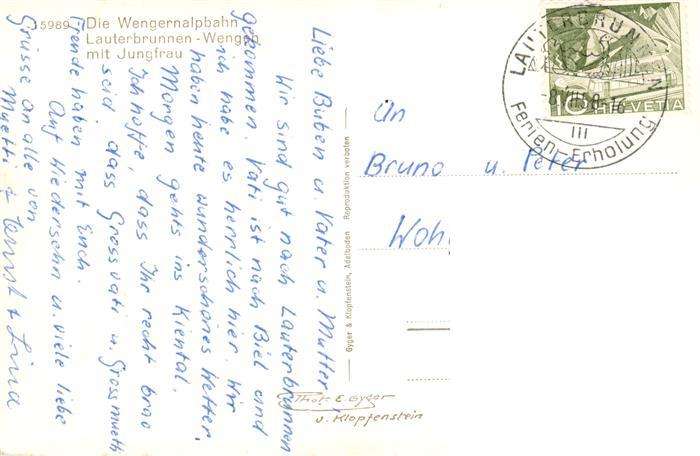 15989 Die Wengernalpbahn
Lauterbrunnen - Wengen
mit Jungfrau
Liebe Buben u. Vater u. Mutter!
Wir sind gut nach Lauterbrunnen
gekommen. Vati ist nach Biel und
ich habe es herrlich hier. Wir
haben heute wunderschönes Wetter,
Morgen gehts ins Kiental.
Ich hoffe, dass Ihr recht brav
seid, dass Grossvati u. Grossmuetti
Freude haben mit Euch.
Auf Wiedersehn u. viele liebe
Grüsse an alle von
Muetti + Ernst + Lina
Gyger & Klopfenstein, Adelboden Reproduktion verboten
An
Bruno u. Peter
Woh
HELVETIA
10
LAUTERBRUNNEN
Ferien-Erholung
III
Phot. E. Gyger
u. Klopfenstein